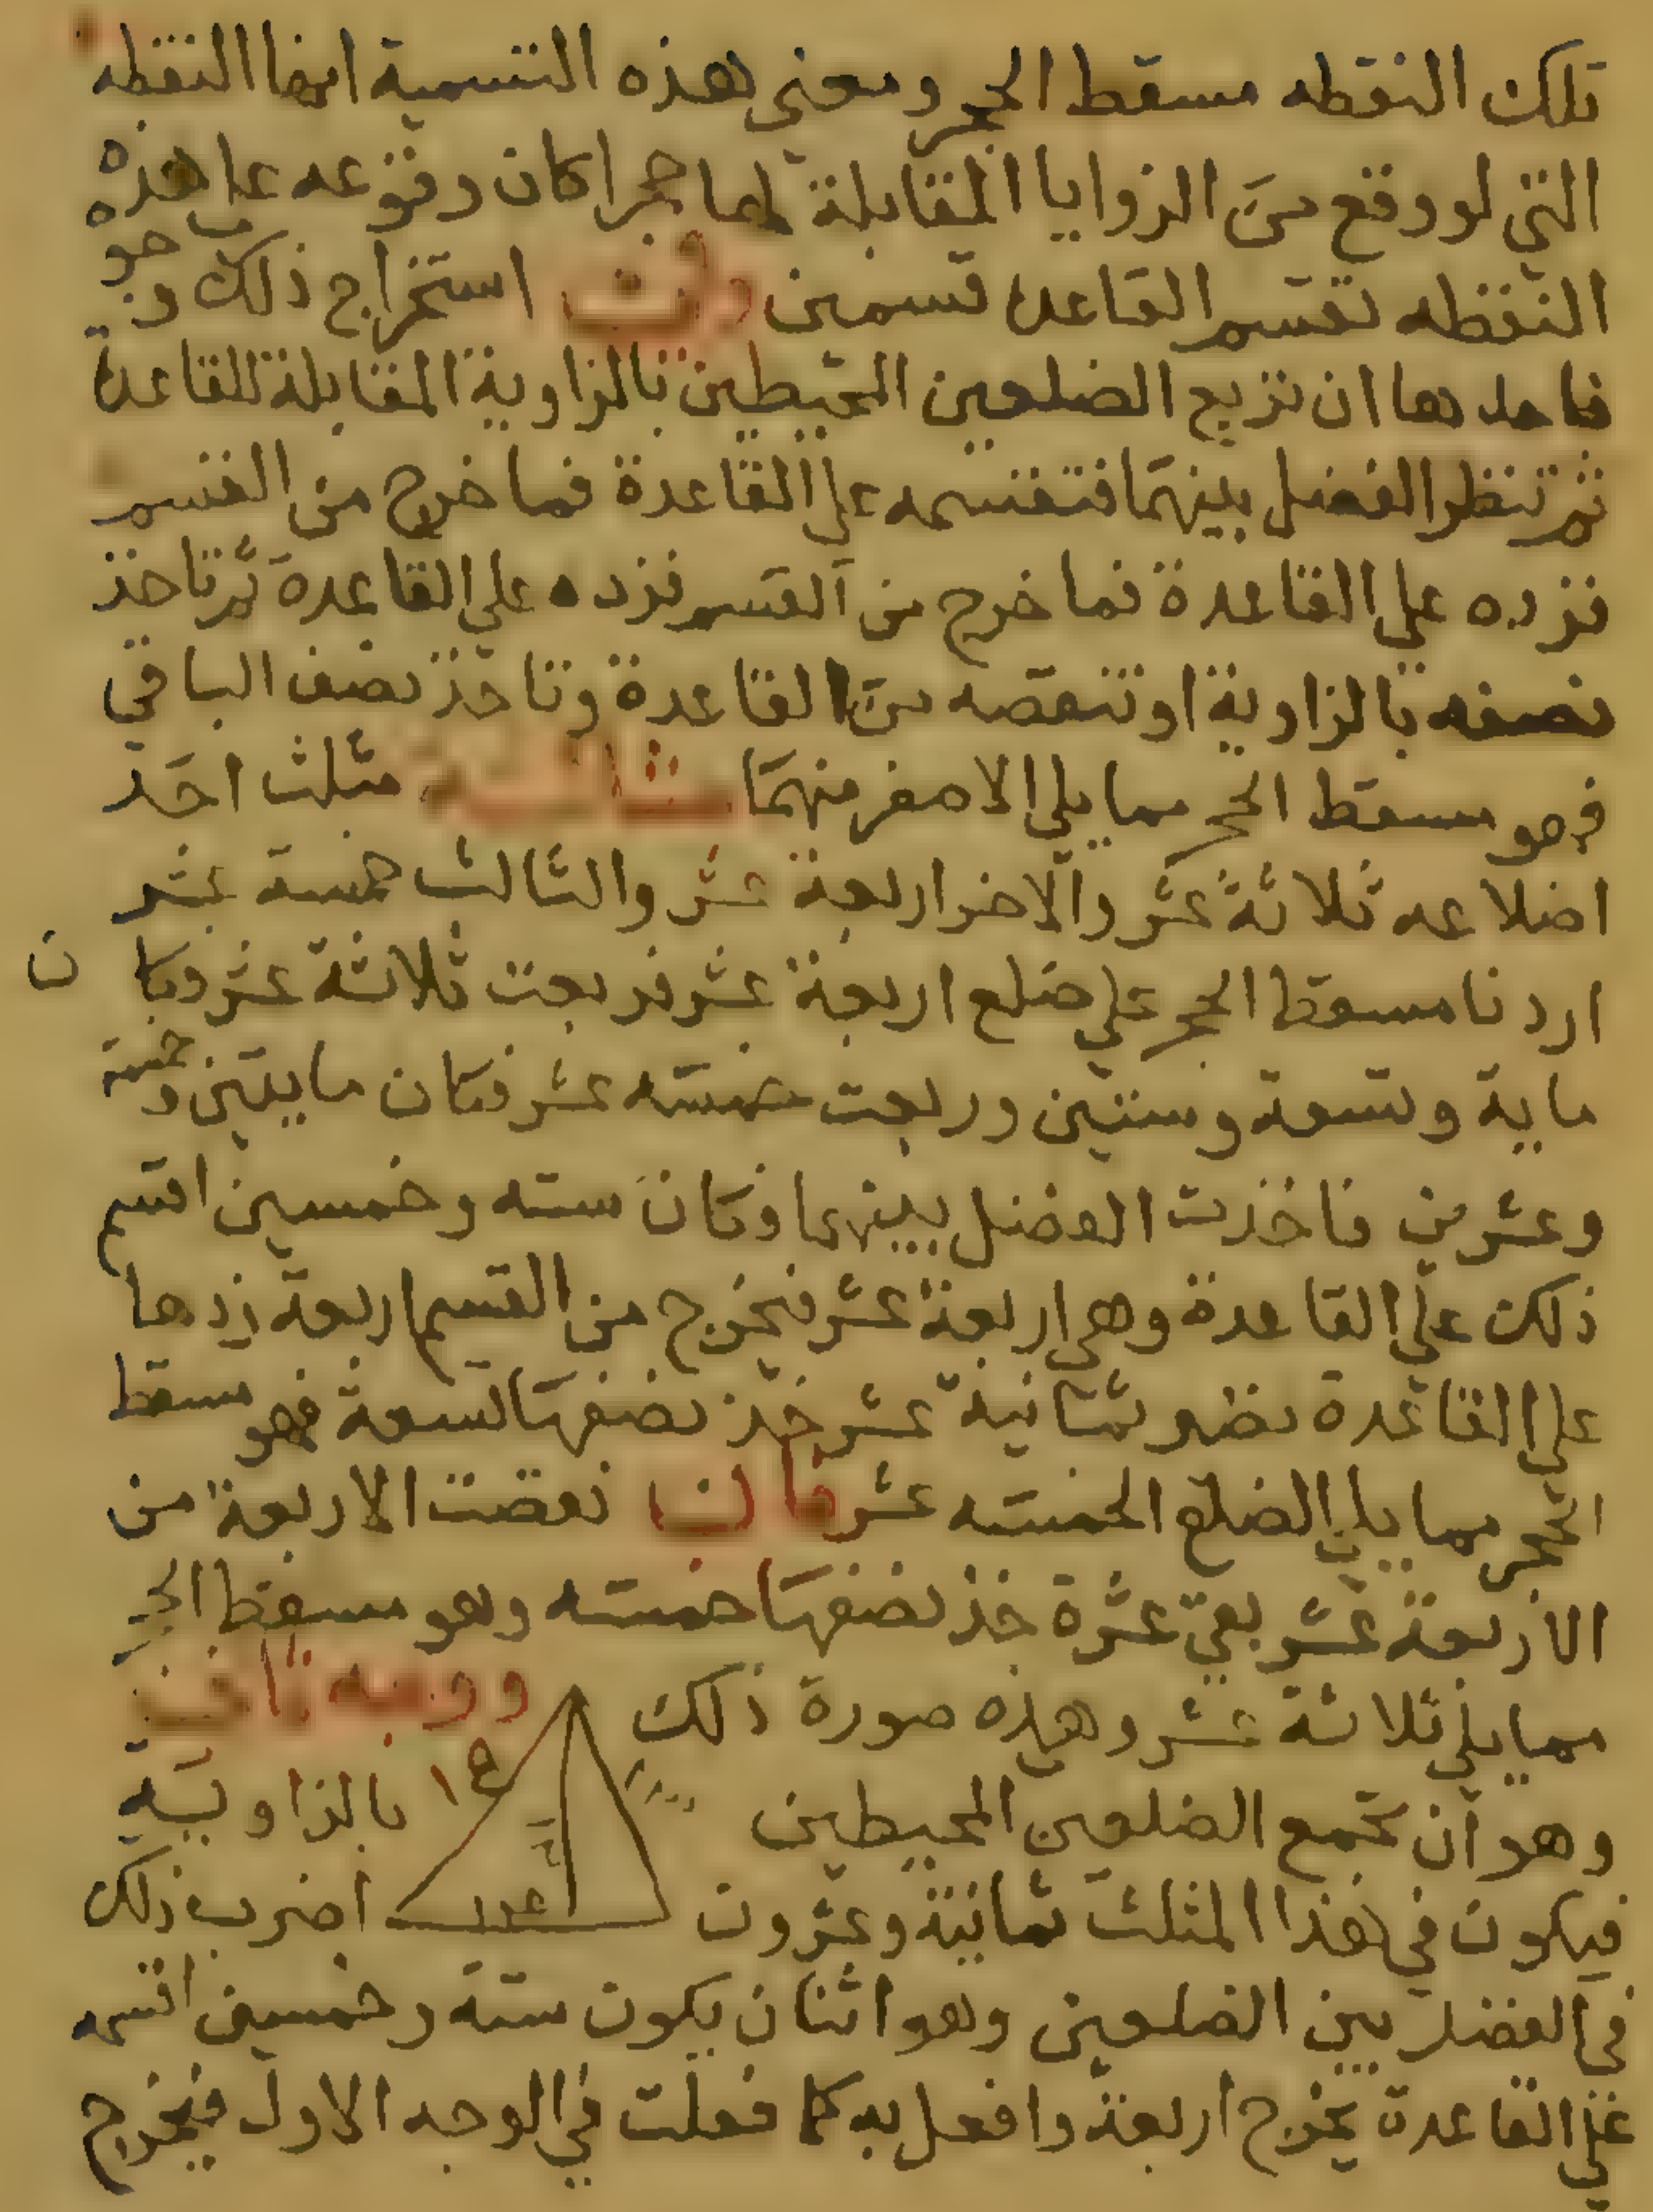 تلك النقطه مسقط الحجر ومعني هذه التسمية انها النقطه
التي لو وقع من الزوايا المقابلة لها حجرا كان وقوعه علي هذه
النقطه تقسم القاعده قسمين استخراج ذلك وجوه
فاحدها ان تربع الضلعين المحيطين بالزاوية المقابلة للقاعدة
ثم تنظر الفضل بينهما فتقسمه علي القاعدة فما خرج من القسم
تزده علي القاعدة فما خرج من القسم تزده علي القاعدة ثم تاخذ
نصفه بالزاوية او تنقصه من القاعدة وتاخذ نصف الباقي
فهو مسقط الحجر مما يلي الاصغر منهما مثاله مثلث احد
اضلاعه ثلاثة عشر والاخر اربعة عشر والثالث خمسة عشر
اردنا مسقط الحجر علي ضلع اربعة عشر فربعت ثلاثة عشر فكان
ماية وتسعة وستين وربعت خمسته عشر فكان مايتين وخمسة
وعشرين فاخذت الفضل بينهما وكان سته وخمسين اقسم
ذلك علي القاعدة وهي اربعة عشر فيخرج من القسم اربعة زدها
علي القاعدة تصر ثمانية عشر خذ نصفها تسعة فهو مسقط
الحجر مما يلي الضلع الخمسته عشر فان نقصت الاربعة من
الاربعة عشر بقي عشرة خذ نصفها خمسته وهو مسقط الحجر
مما يلي ثلاثة عشر وهذه صورة ذلك ووجه ثاني
وهو ان تجمع الضلعين المحيطين ١٥ بالزاويية
فيكون في هذا المثلث ثمانية وعشرون اضرب ذلك
في الفضل بين الضلعين وهو اثنان يكون ستة وخمسين اقسمه
علي القاعدة يخرج اربعة وافعل به كما فعلت في الوجه الاول فيخرج